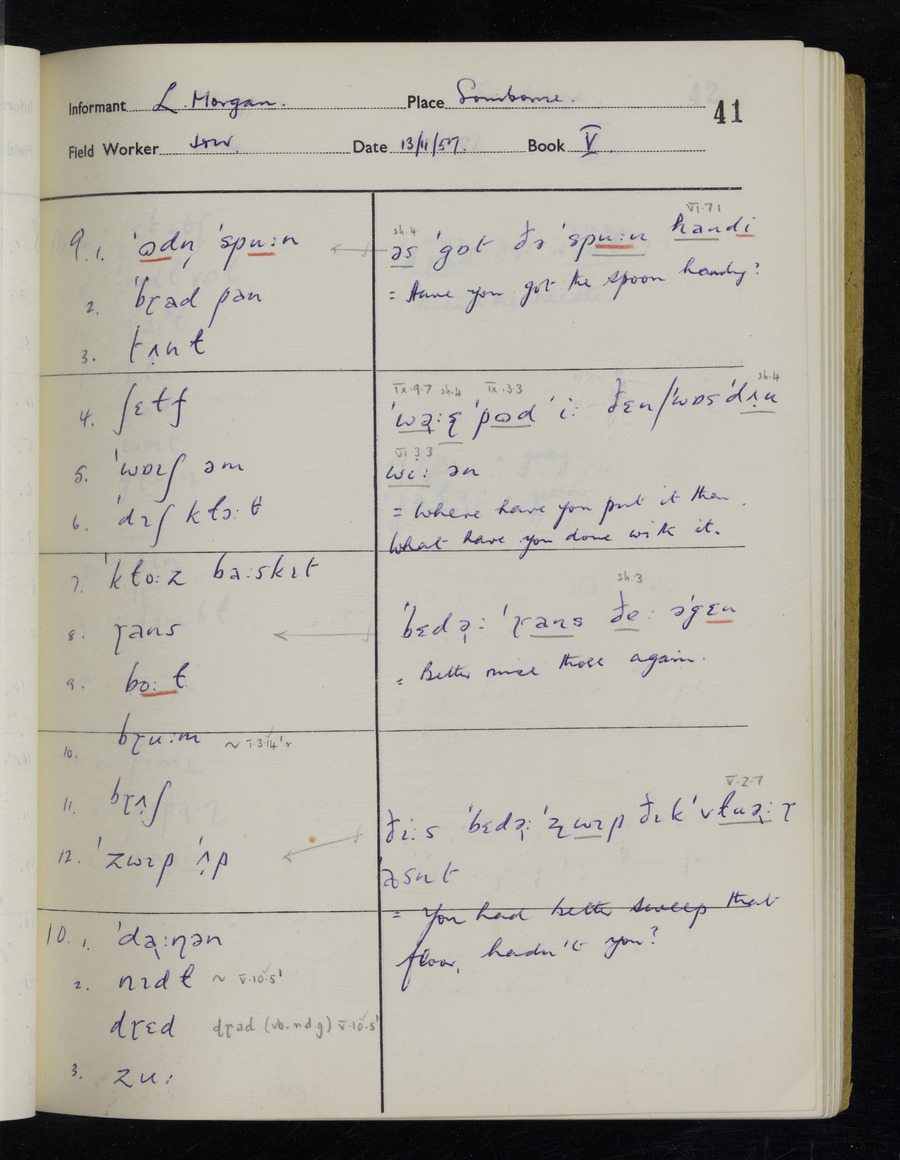 Informant L. Morgan. Place Sombourne.
41
Field Worker Date 13/11/57. Book V.
9. 1. ˈɷdn̩ ˈspuːn
2. ˈbɽad pan
3. tʌ̩nt
4. ʃɛtf
5. ˈwɒɪʃ əm
6. ˈdɪʃ kɫɔːθ
7. ˈkɫoːz baːskɪt
8. ɽans
9. boːɫ
10. bɽuːm ~ V.3.14
11. bɽʌʃ
12. ˈzwɪp ˈʌp
10. 1. ˈdaːnən
2. nɪdɫ ~ V.10.5ˈ
dɽɛd dɽad (vb. ndg) V.10.5ˈ
3. zuː
sh.4 VI.7.1
əs ˈgɒt ðə ˈspuːn handi
= Have you got the spoon handy?
IX.9.7 sh.4 IX.3.3 sh.4
ˈpɷd ˈiː ðɛn/ˈwɒsˈdʌn
VI 3.3
wiː ən
= Where have you put it then.
What have you done with it.
sh.3
ˈbɛdəː ˈɽans ðeː əˈgɛn
= Better rinse those again.
V.2.7
ðiːs ˈbɛdəː ˈzwɪp ðɪk ˈvɫuəːɽ
= You had better sweep that
floor, hadn't you?